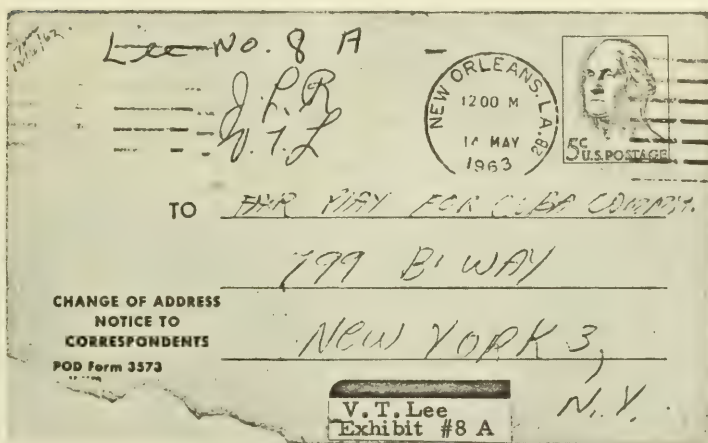 Lee No. 8 A
J. L. R
V. T. L
NEW ORLEANS, LA. 28
1200 M
14 MAY
1963
5c
U.S. POSTAGE
TO FAIR PLAY FOR CUBA COMMM.
799 B'WAY
NEW YORK 3,
N.Y.
CHANGE OF ADDRESS
NOTICE TO
CORRESPONDENTS
POD Form 3573
V. T. Lee
Exhibit #8 A